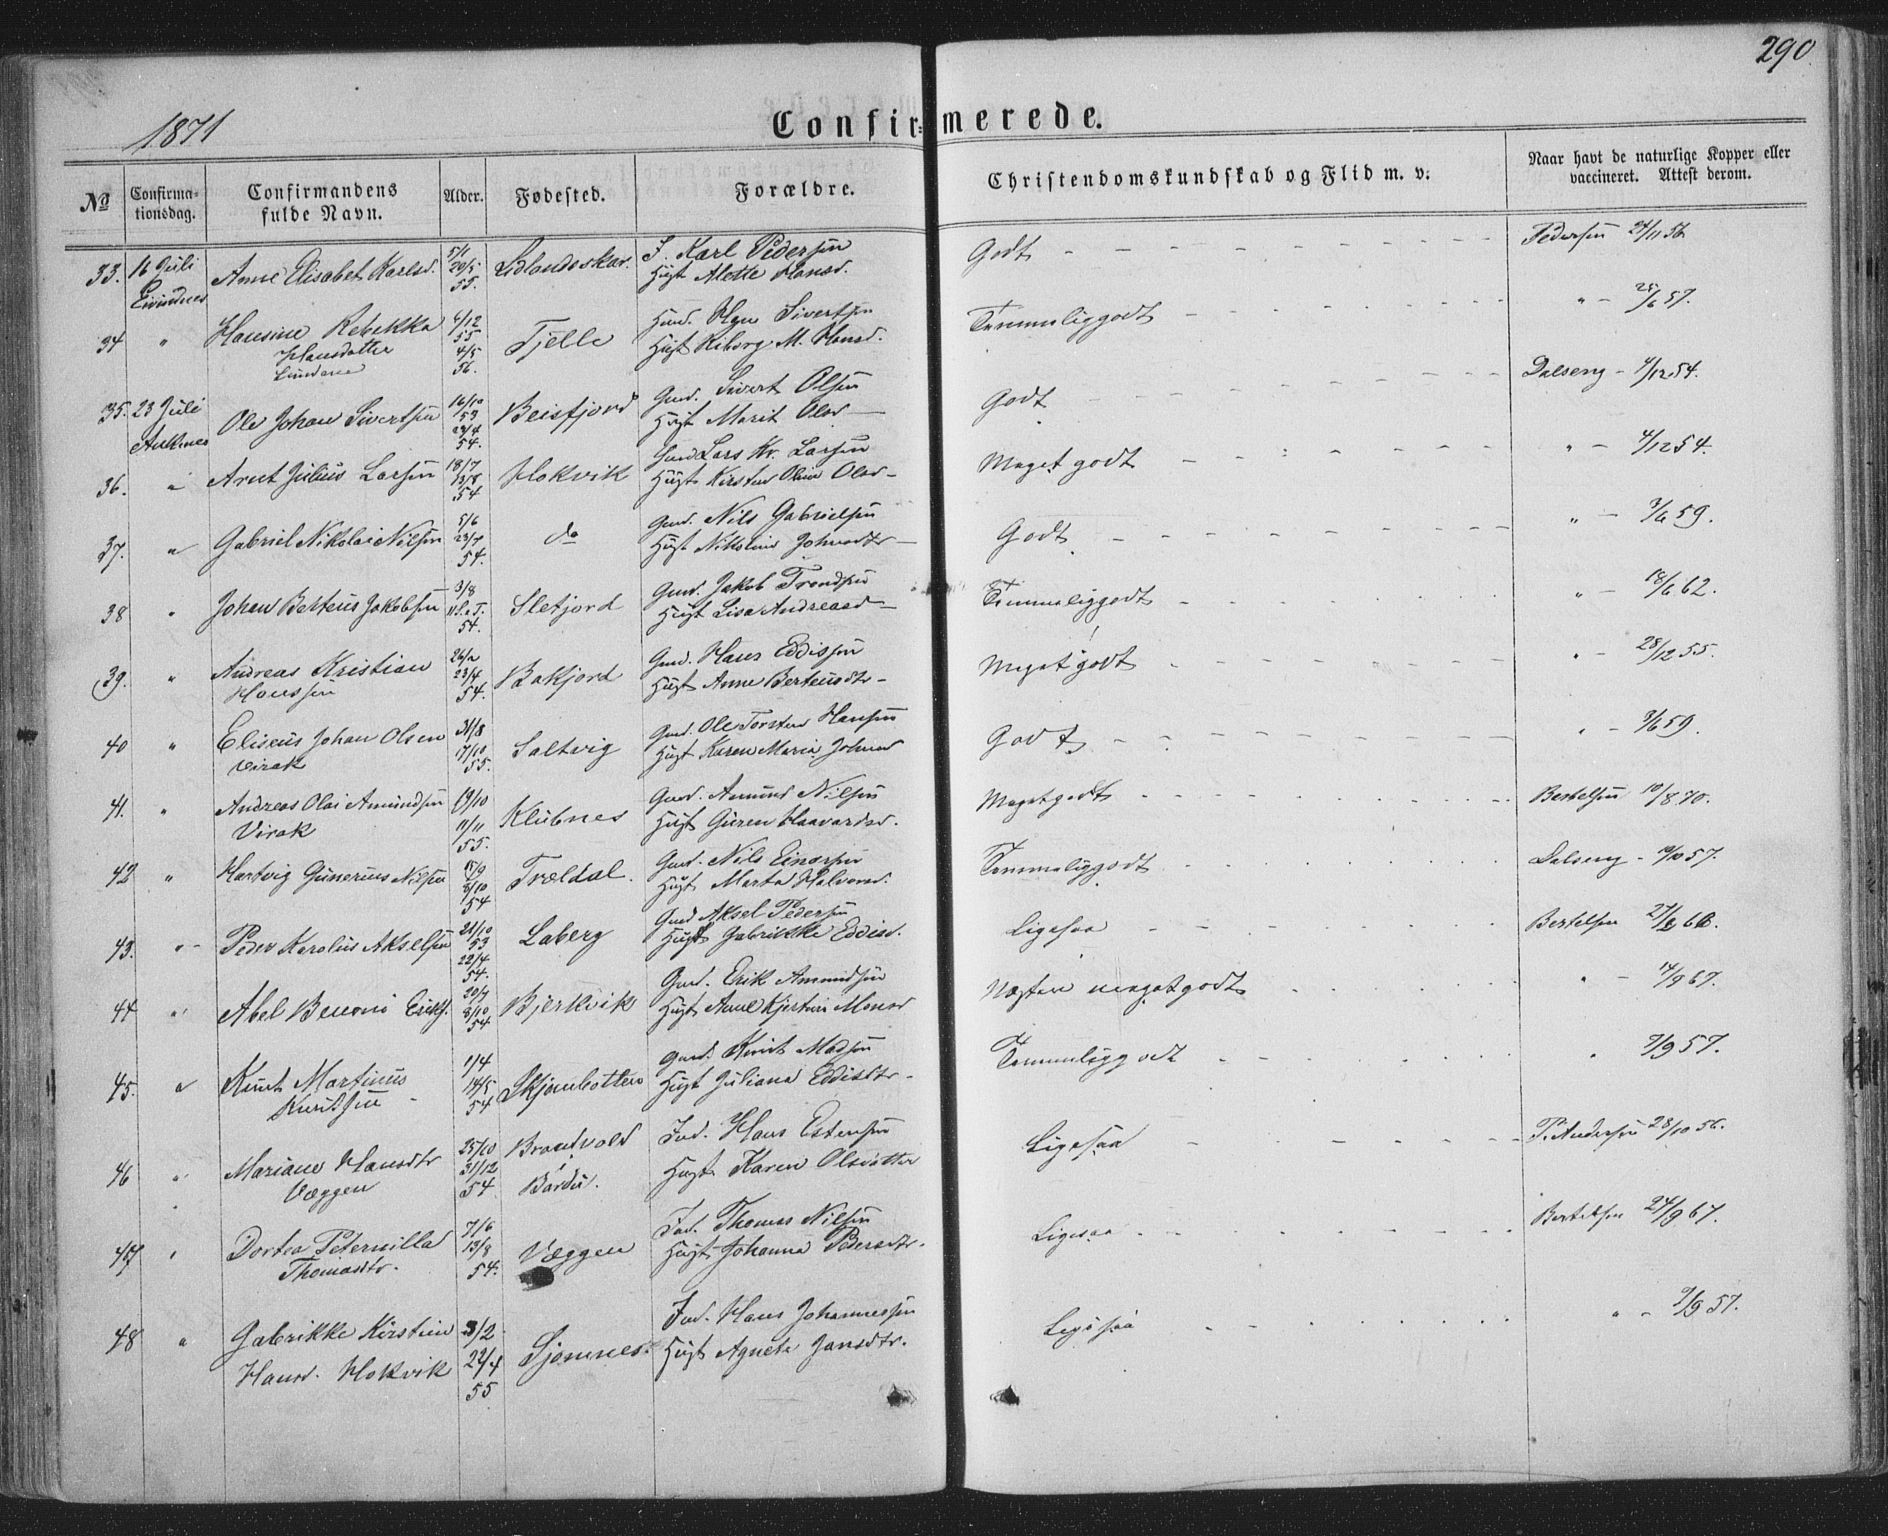 290.
1871
Confirmerede.
No Confirmationsdag. Confirmandens fulde Navn. Alder. Fødested. Forældre. Christendomskundskab og Flid m. v. Naar havt de naturlige Kopper eller vaccineret. Attest derom.
33. 16 Juli Anne Elisabet Karlsd. 5/1 20/5 55. F. Karl Pedersen Hust Alette Hansd. Godt Pedersen 24/11 56
34 " Hansine Rebekka Hansdatter 4/12 55 4/5 56. Fjelle Sivertsen Hust M. Hansd. Temmeliggodt " 57.
35. 23 Juli Ankenes Ole Johan Sivertsen 16/10 53 23/4 54. Beisfjord Gmd. Sivert Olsen Hust Marit Olsd Godt Dalseng 4/12 54.
36. " Arnt Julius Larsen 18/7 13/8 54 Hokvik Gmd Lars Kr. Larsen Hust Kirsten Oline Olsd Meget godt " 4/12 54.
37. " Gabriel Nikolai Nilsen 5/6 23/7 54. do Gmd. Nils Gabrielsen Hust Nikoline Johnsdtr Godt " 3/6 59.
38 " Johan Berteus Jakobsen 3/8 54. Sletjord Gmd. Jakob Trondsen Hust Lisa Andreasd Temmeliggodt " 18/6 62.
39. " Andreas Kristian Hanssen 26/2 23/4 54. Bakjord Gmd. Hans Eddissen Hust Anne Berteusdtr Meget godt " 28/12 55.
40 " Eliseus Johan Olsen Virak 31/8 17/10 55. Saltvig Gmd. Ole Torsten Hansen Hust Karen Maria Johnsd Godt " 3/6 59.
41. " Andreas Olai Amundsen Virak 19/10 11/11 55. Klubnes Gmd. Amund Nilsen Hust Guren Haavardsd. Meget godt Bertelsen 10/8 70.
42 " Hartvig Gunerius Nilsen 15/9 8/10 54 Trældal. Gmd. Nils Einarsen Hust Marta Halvorsd. Temmeliggodt Dalseng 57.
43. " Peder Karolus Akselsen 21/10 53 22/4 54. Laberg Gmd Aksel Pedersen Hust Gabrikke Eddisd. Ligesaa Bertelsen
44 " Abel Benoni Eriks. 20/7 8/10 54. Bjerkvik Gmd. Erik Amundsen Hust Anne Kjerstin Monsd Næsten meget godt " 14/9 67.
45. " Knut Martinus Knutsen 1/4 14/5 54 Skjombotten Gmd. Knut Madsen Hust Juliana Eddisdtr Temmeliggodt " 57.
46 " Mariane Hansdtr Væggen 25/10 31/12 54. Brandvold Bardu. Ind. Hans Estensen Hust Karen Olsdatter Ligesaa P. Andersen 28/10 56.
47 " Dortea Peternilla Thomasdtr. 7/6 13/8 54. Væggen Ind. Thomas Nilsen Hust Johanna Pedersdtr. Ligesaa Bertelsen 24/9 67.
48 " Gabrikke Kirstine Hansd. Hokvik 3/2 22/4 55. Sjomnes. Ind. Hans Johannessen Hust Agnete Jansdtr. Ligesaa " 57.